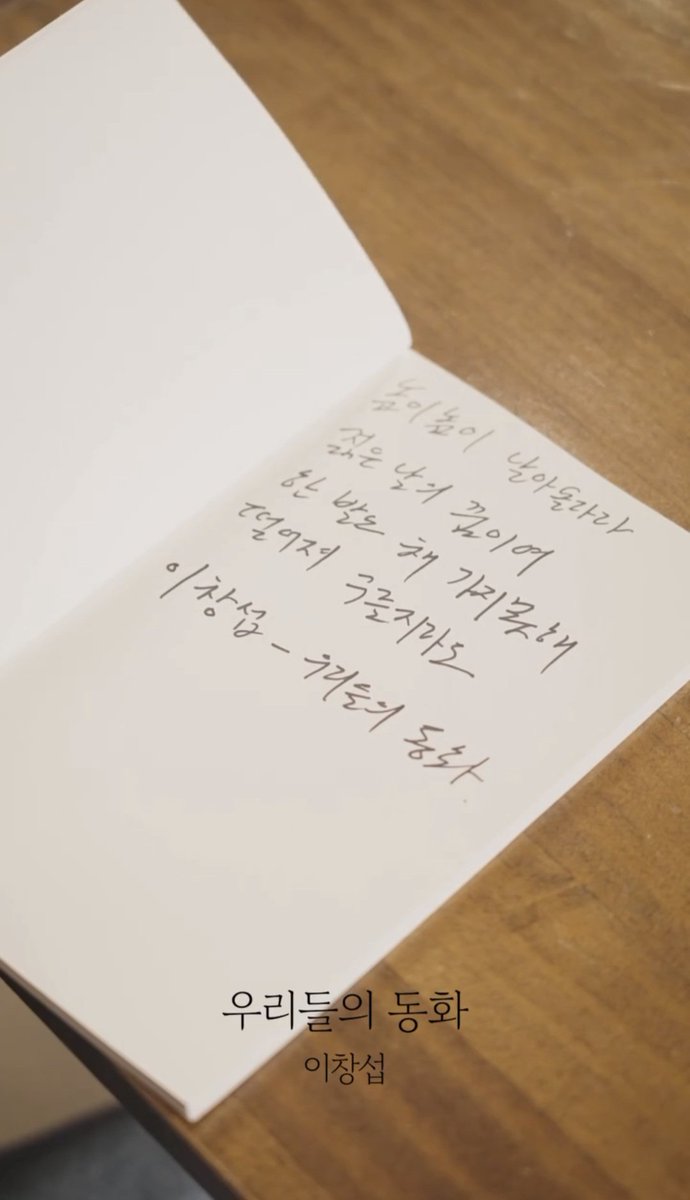 높이높이 날아올라라
젊은 날의 꿈이여
한 발도 채 가지못해
떨어져 구를지라도
이창섭 - 우리들의 동화
우리들의 동화
이창섭